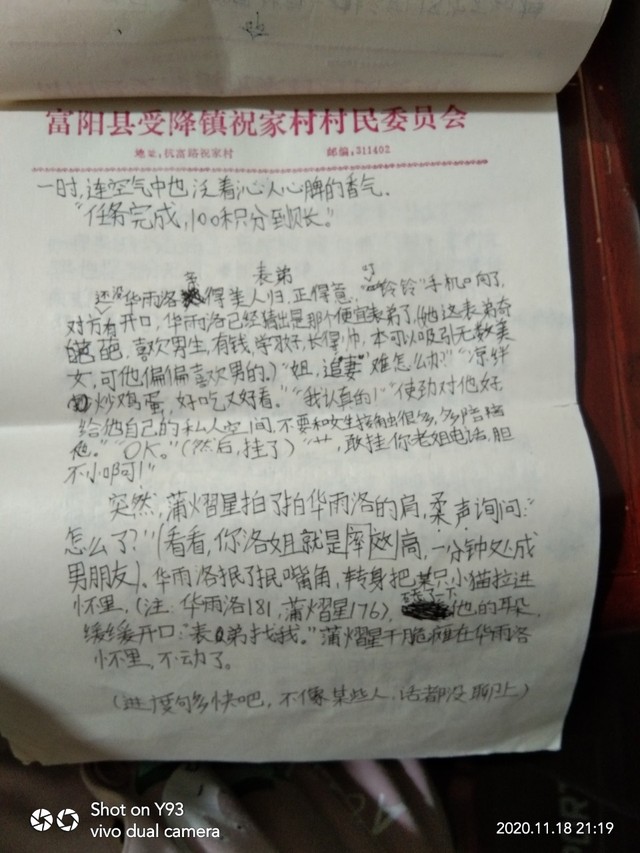 富阳县受降镇祝家村村民委员会
地址:杭富路祝家村 邮编,311402
一时,连空气中也泛着沁人心脾的香气.
“任务完成,100积分到账。”
还没华雨洛 得美人归,正得意,“叮铃铃”手机响了,
表弟
对方没开口,华雨洛已经猜出是那个便宜表弟了,(她这表弟奇
葩,喜欢男生,有钱,学习好,长得帅,本可以吸引无数美
女,可他偏偏喜欢男的)“姐,追妻难怎么办?”“凉拌
炒鸡蛋,好吃又好看。”“我认真的!”“使劲对他好
给他自己的私人空间,不要和女生接触很多,多陪陪
他。”“OK。”(然后,挂了)“艹,敢挂你老姐电话,胆
不小啊!”
突然,蒲熠星拍了拍华雨洛的肩,柔声询问:“
怎么了?”(看看,你洛姐就是率效高,一分钟处成
男朋友)、华雨洛抿了抿嘴角,转身把某只小猫拉进
怀里,(注:华雨洛181,蒲熠星176), 了一下他的耳朵,
缓缓开口:“表弟找我。”蒲熠星干脆 在华雨洛
怀里,不动了。
(进度够多快吧,不像某些人,话都没聊上)
Shot on Y93
vivo dual camera
2020.11.18 21:19